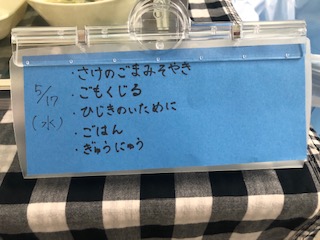 5/17
(水)
・さけのごまみそやき
・ごもくじる
・ひじきのいために
・ごはん
・ぎゅうにゅう